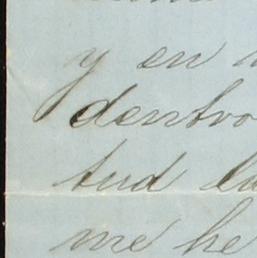 y en
dentro
tud
me he